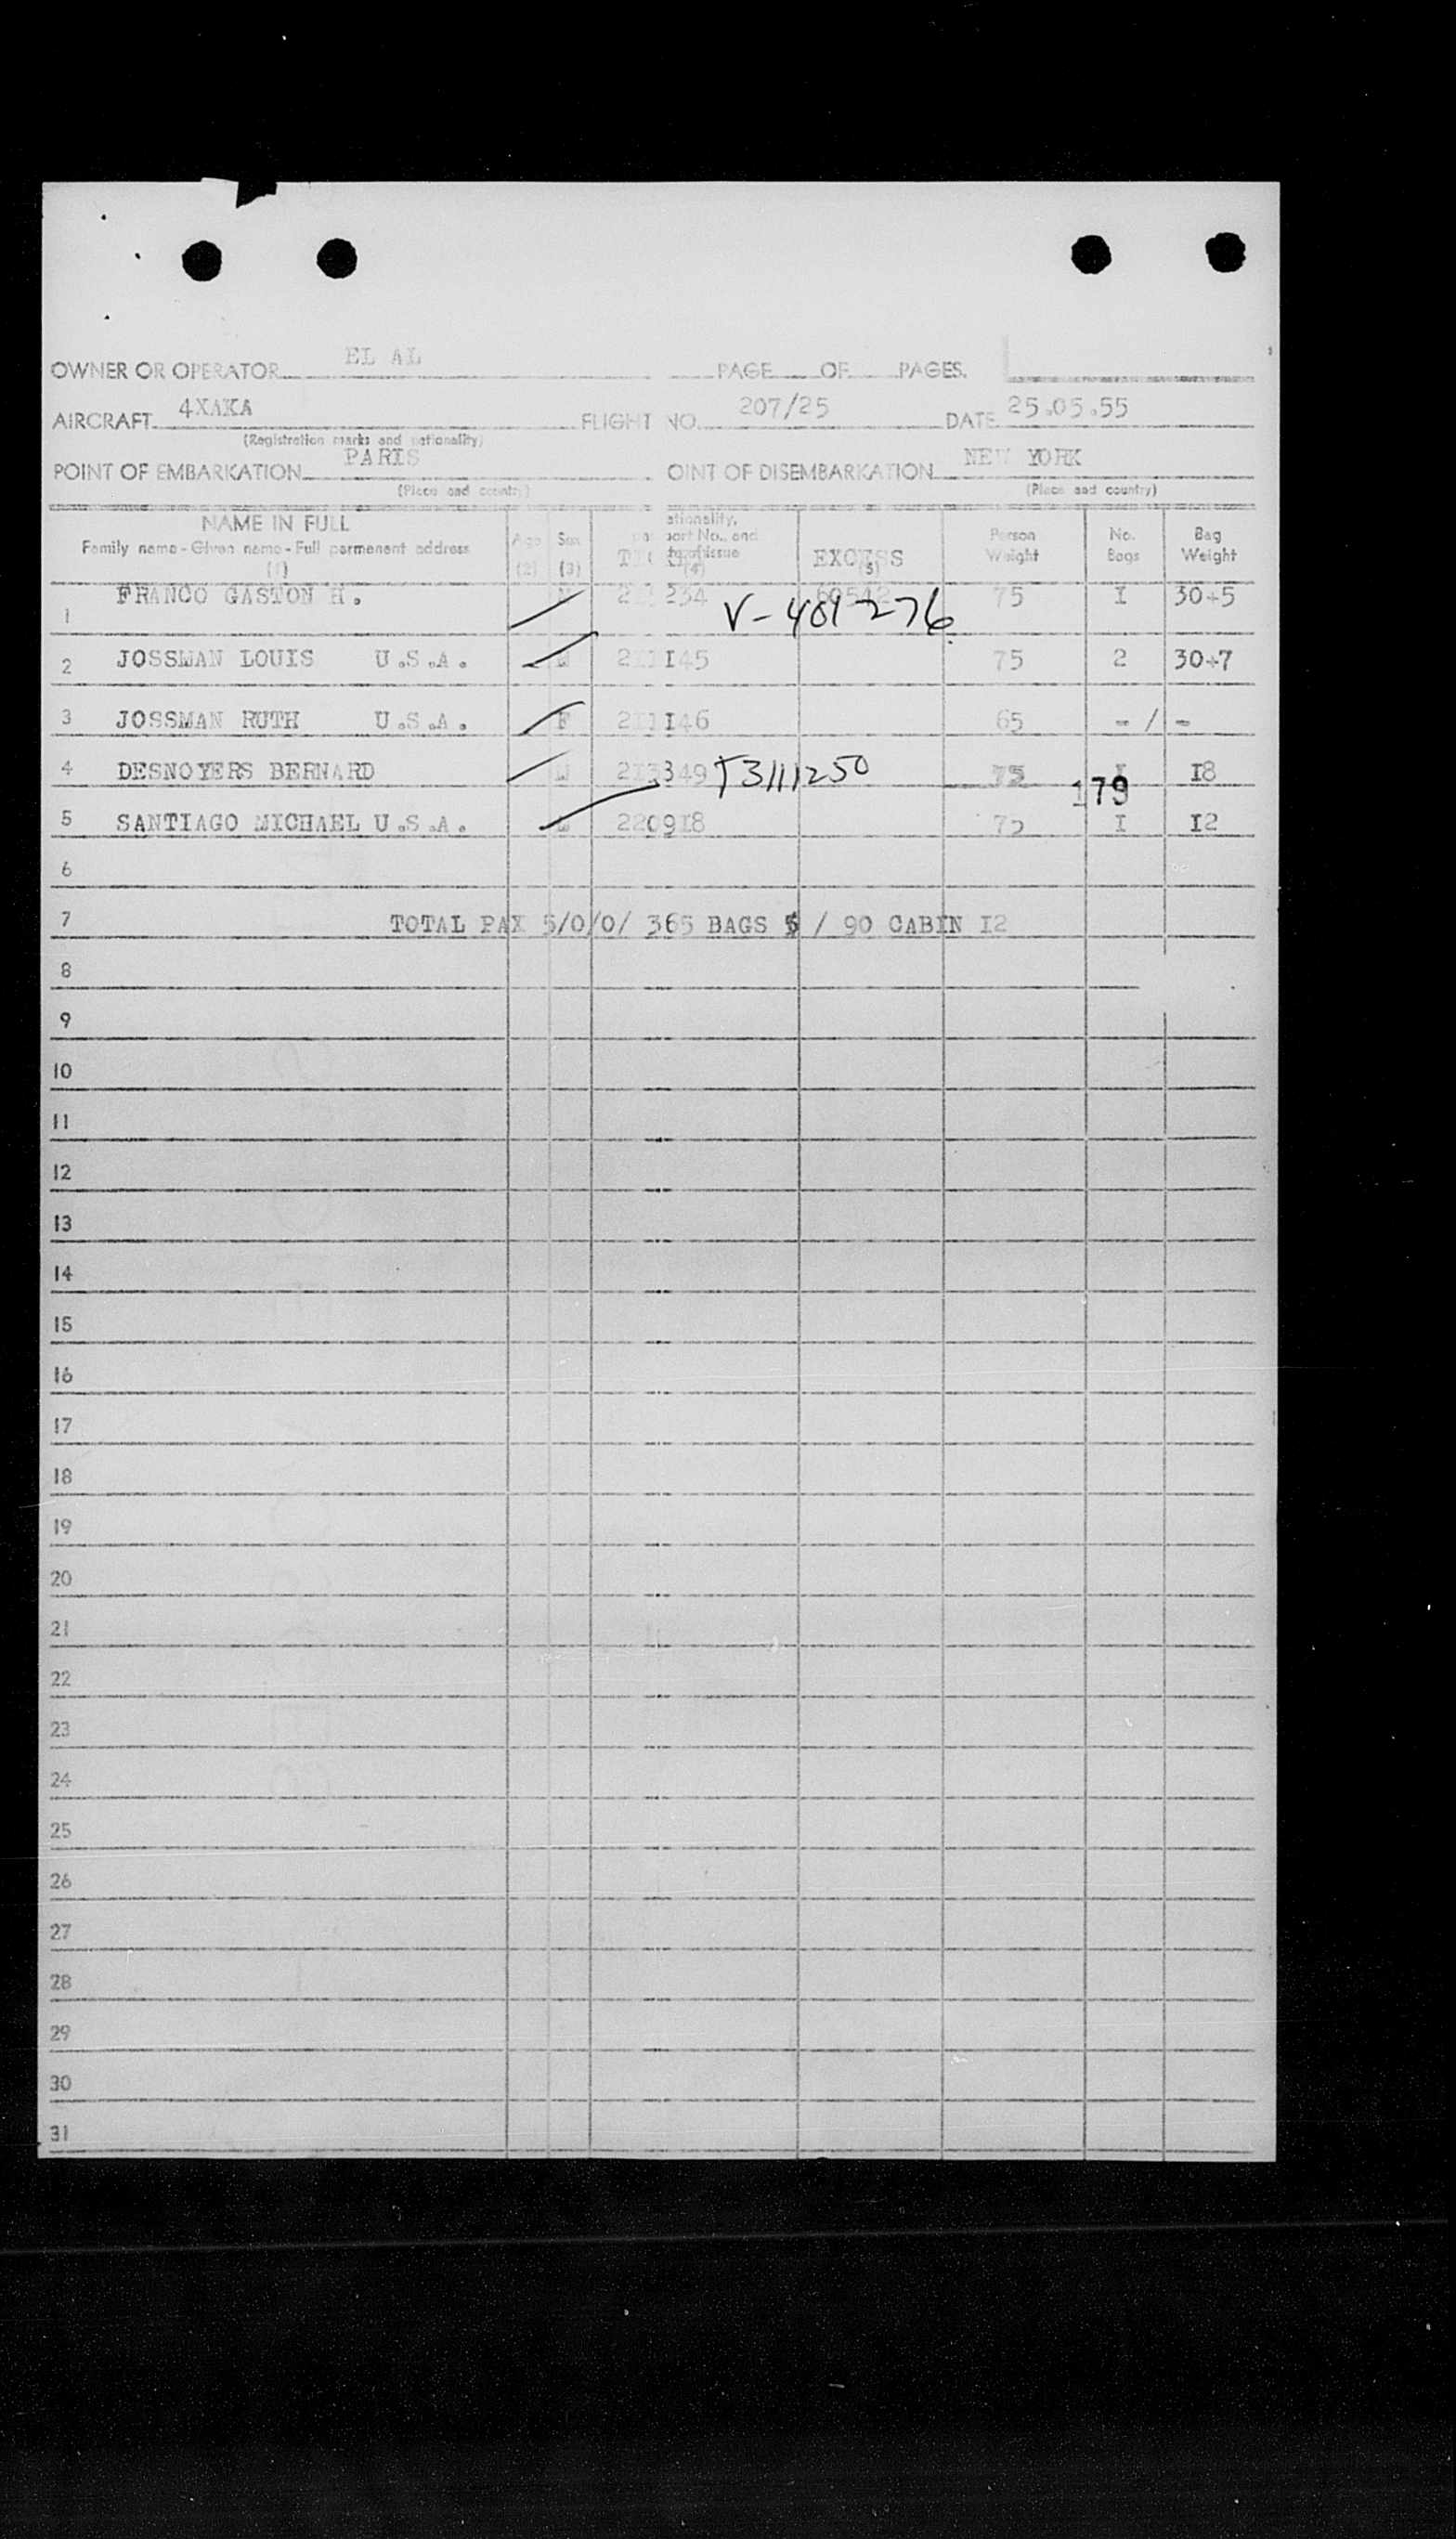 EL AL
OWNER OR OPERATOR PAGE OF PAGES.
AIRCRAFT 4XAKA FLIGHT NO. 207/25 DATE 25.05.55
(Registration marks and nationality)
POINT OF EMBARKATION PARIS OINT OF DISEMBARKATION NEW YORK
(Place and country) (Place and country)
NAME IN FULL
Family name - Given name - Full permanent address
(1)
Age (2) Sex (3)
(4)
EXCESS (5)
Person Weight
No. Bags
Bag Weight
1 FRANCO GASTON H. 234 60542 75 I 30+5
V-401276
2 JOSSMAN LOUIS U.S.A. M 211145 75 2 30+7
3 JOSSMAN RUTH U.S.A. F 211146 65 - / -
4 DESNOYERS BERNARD M 213349 T3111250 75 I 18
179
5 SANTIAGO MICHAEL U.S.A. 220918 75 I I2
6
7 TOTAL PAX 5/0/0/ 365 BAGS 5 / 90 CABIN I2
8
9
10
11
12
13
14
15
16
17
18
19
20
21
22
23
24
25
26
27
28
29
30
31